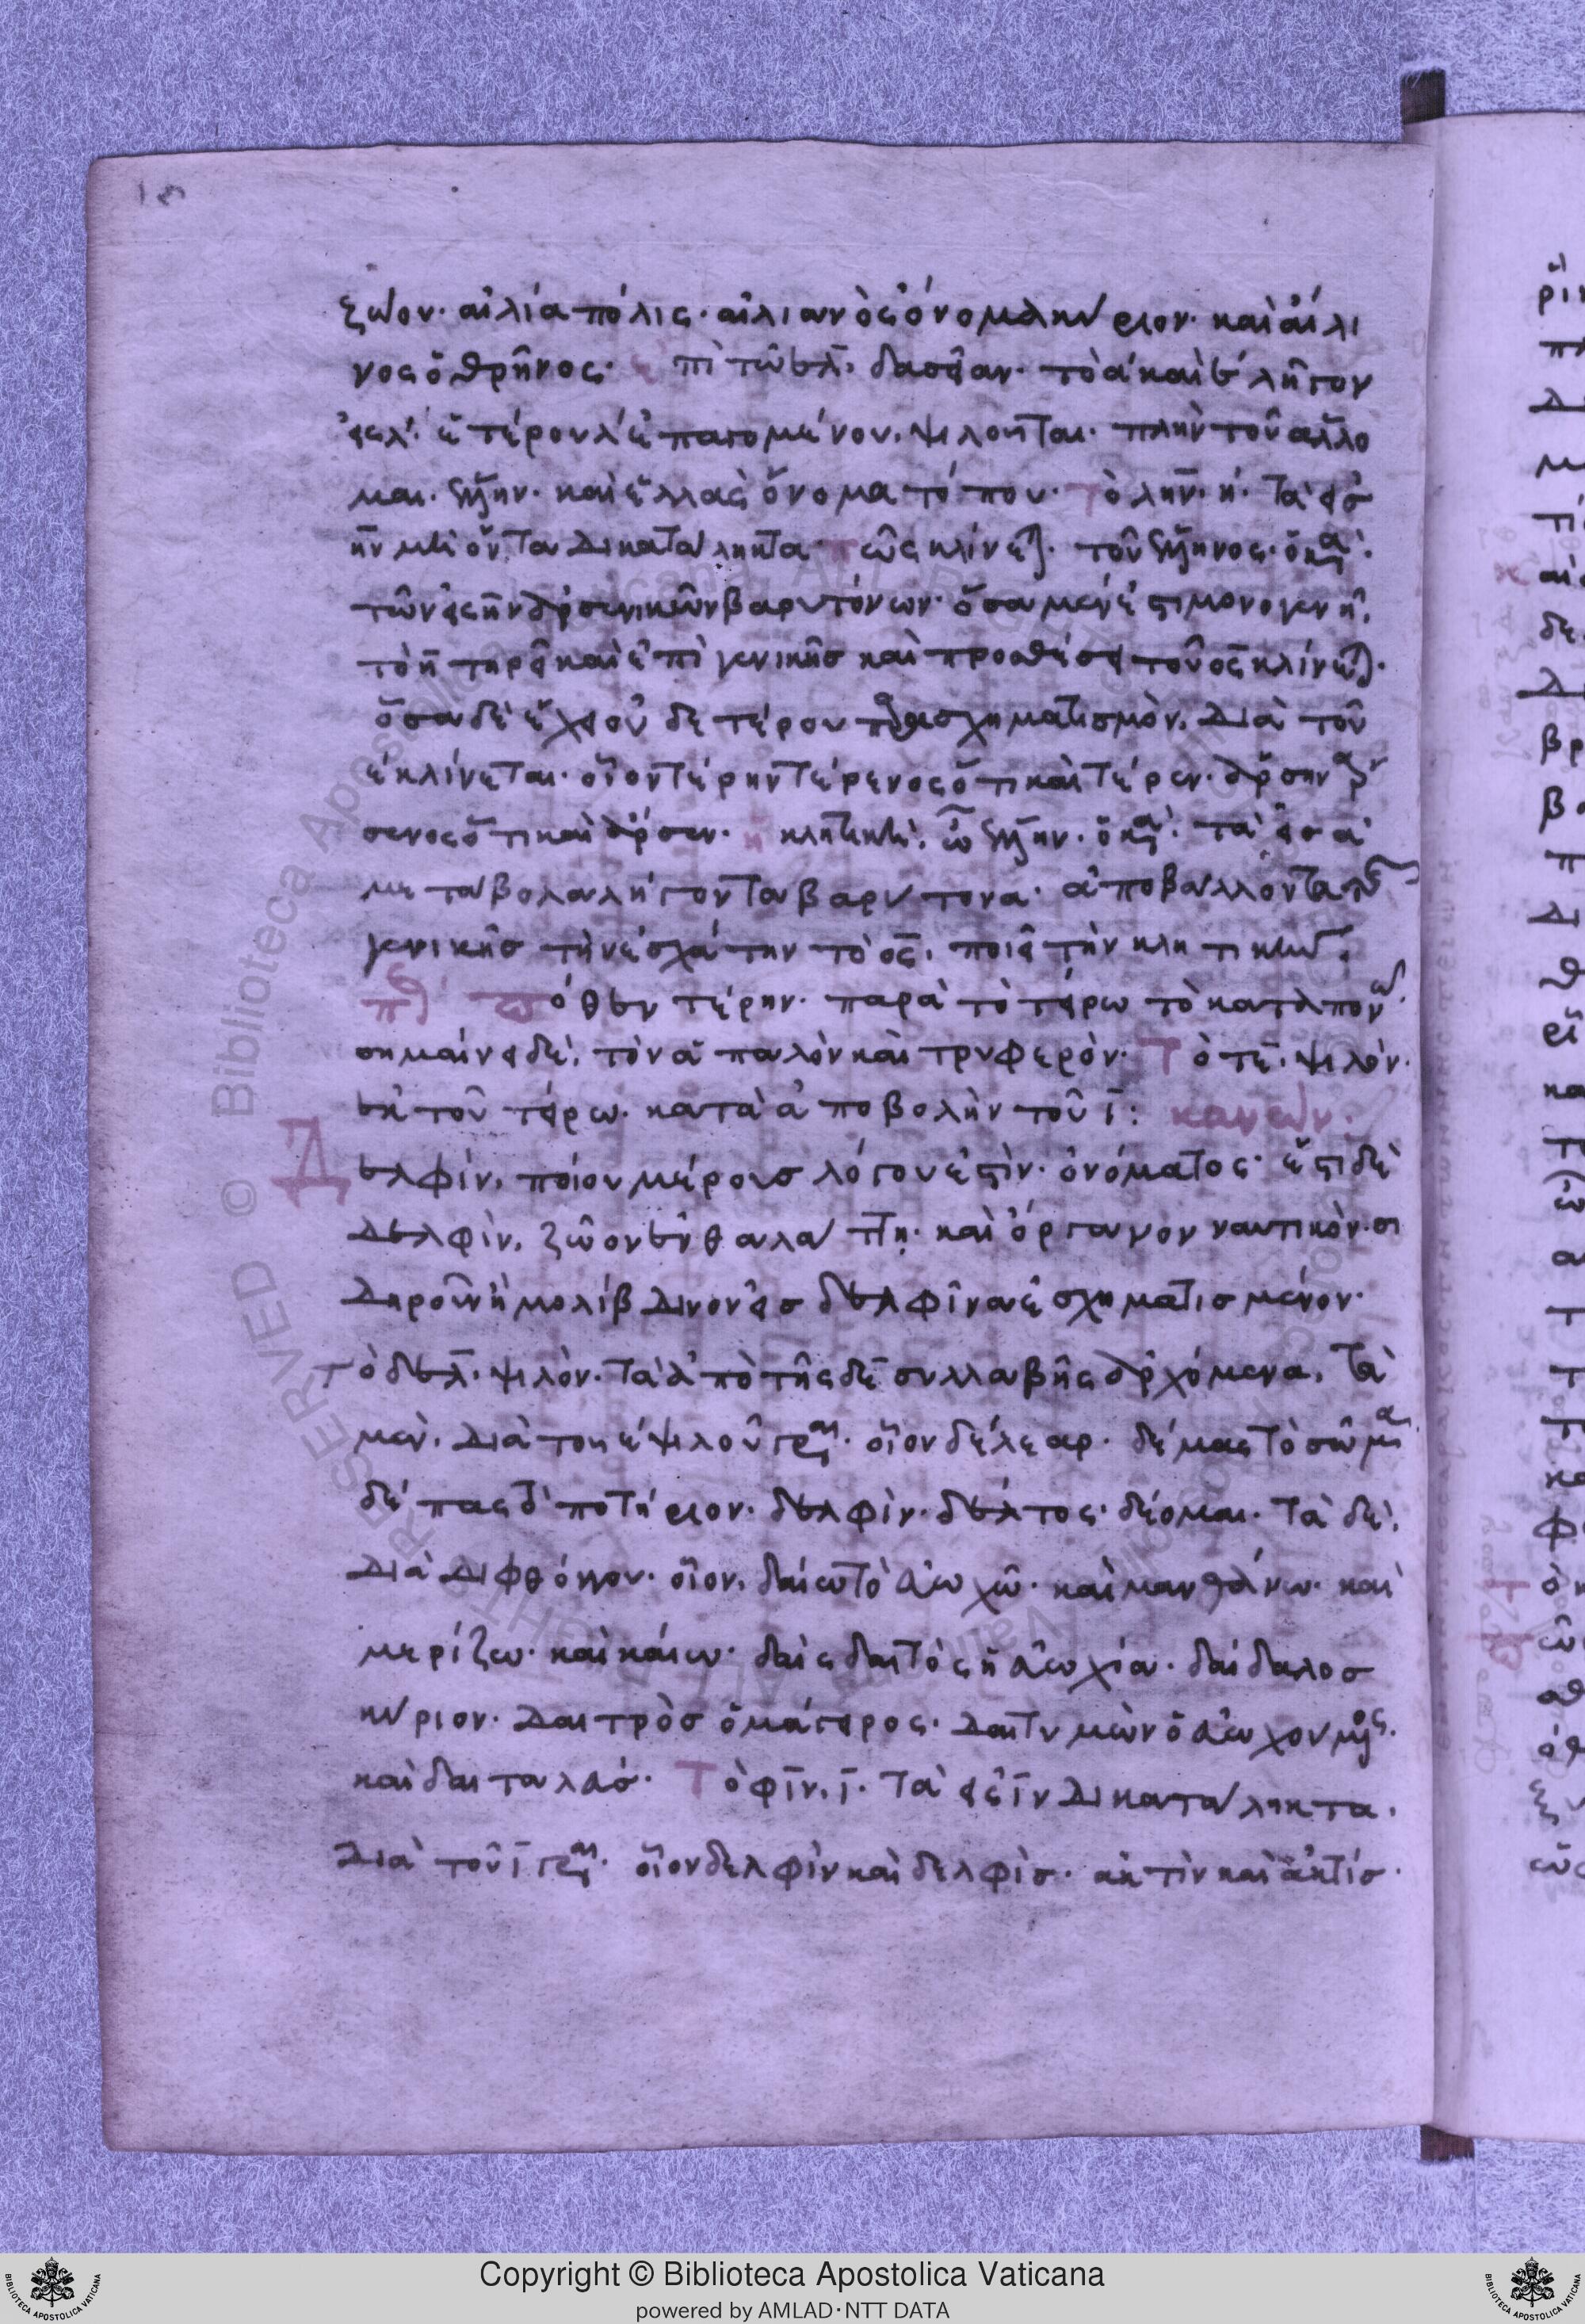 ζῶον· αἰλία πόλις· αἰλιανὸς ὄνομα κύριον· καὶ αἴλι
νος ὁ θρῆνος· ἐπὶ τῶ ελ̄. δασεῖαν· τὸ α καὶ ε λῆγον
εἰς λ ἑτέρου λ ἐπαγομένου, ψιλοῦται· πλὴν τοῦ ἅλλο
μαι· ἕλλην· καὶ ἑλλὰς ὄνομα τόπου· Τὸ λην̄· η· τὰ εἰσ
ην μὴ ὄντα δικατάληκτα πῶς κλίνεται· τοῦ ἕλληνος· ὁ κα
τῶν εἰς ην ἀρσενικῶν βαρυτόνων· ὅσα μέν ἐστι μονογενῆ,
τὸ η̄ τηρεῖ καὶ ἐπὶ γενικῆσ καὶ προσθέσει τοῦ ος κλίνεται·
ὅσα δὲ ἔχει οὐδετέρου παρασχηματισμὸν, διὰ τοῦ
ε κλίνεται· οἷον τέρην τέρενος ὅτι καὶ τέρεν· ἄρσην ἄρ
σενος ὅτι καὶ ἄρσεν· ἡ κλητικὴ, ὦ ἕλλην· ὁ κα τὰ εἰσ α
μετάβολα λήγοντα βαρύτονα· ἀποβάλλοντα τῆς
γενικῆσ τὴν ἐσχάτην τὸ ος, ποιεῖ τὴν κλητικήν·
πόθεν τέρην· παρὰ τὸ τείρω τὸ καταπονῶ·
σημαίνει δὲ, τὸν ἁπαλὸν καὶ τρυφερόν· Τὸ τε̄· ψιλόν·
ἐκ τοῦ τείρω· κατὰ ἀποβολὴν τοῦ ῑ: κανών·
Δελφὶν, ποίου μέρουσ λόγου ἐστὶν· ὀνόματος· ἔστι δὲ
δελφὶν, ζῶον ἐν θαλάττη· καὶ ὄργανον ναυτικὸν· σι
δηροῦν ἢ μολίβδινον εἰσ δελφῖνα ἐσχηματισμένον·
Τὸ δελ̄· ψιλόν· Τὰ ἀπὸ τῆς δε̄ συλλαβῆς ἀρχόμενα, τὰ
μὲν, διὰ τοῦ ε ψιλοῦ γρ· οἷον δέλεαρ· δέμας τὸ σῶμα
δέπας τὸ ποτήριον· δελφίν· δέλτος· δέομαι· Τὰ δὲ,
διὰ διφθόγγου· οἷον, δαίω τὸ εὐωχῶ· καὶ μανθάνω· καὶ
μερίζω· καὶ καίω· δαὶς δαιτὸς ἡ εὐωχία· δαίδαλοσ
κύριον· δαιτρὸσ ὁ μάγειρος· δαιτυμὼν ὁ εὐωχούμενος·
καὶ δαιταλεύσ· Τὸ φῑν, ῑ· Τὰ εἰς ῑν δικατάληκτα·
διὰ τοῦ ῑ γρ· οἷον δελφὶν καὶ δελφὶσ· ἀκτὶν καὶ ἀκτίσ·
Copyright © Biblioteca Apostolica Vaticana
powered by AMLAD·NTT DATA